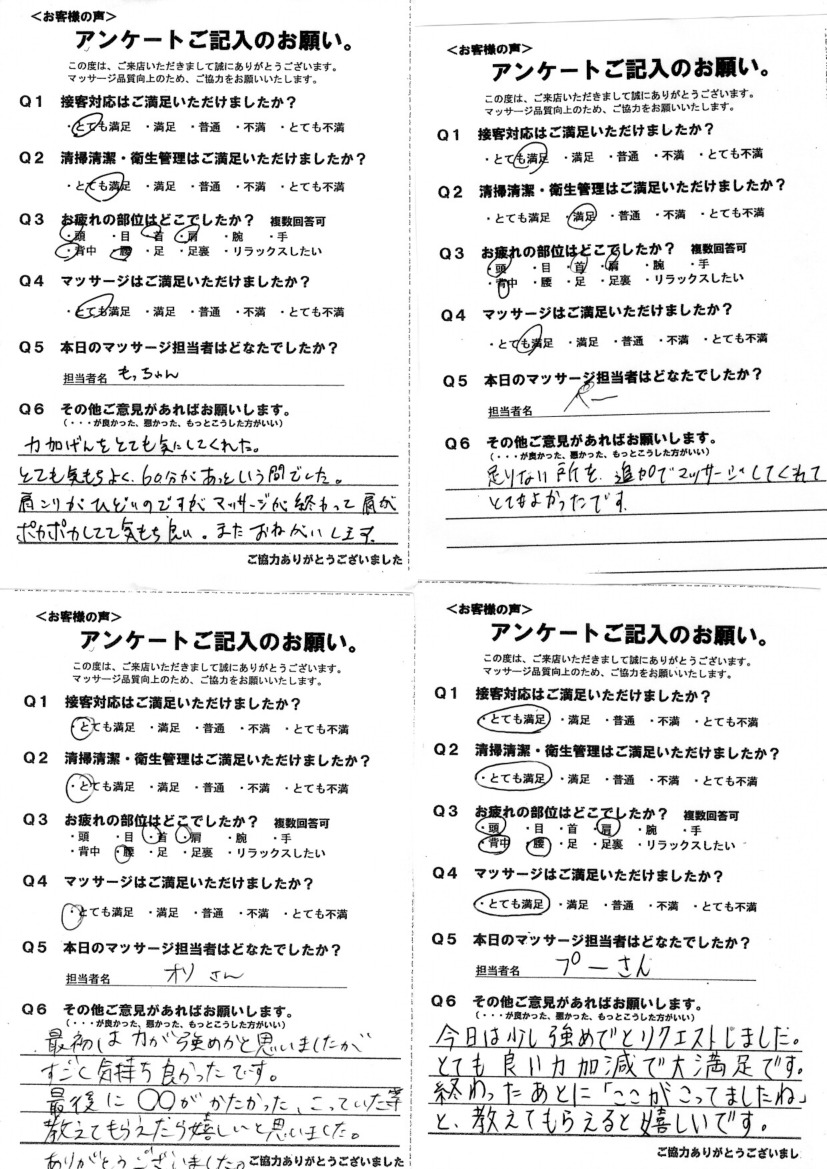 ＜お客様の声＞
アンケートご記入のお願い。
この度は、ご来店いただきまして誠にありがとうございます。
マッサージ品質向上のため、ご協力をお願いいたします。
Q1 接客対応はご満足いただけましたか？
・とても満足 ・満足 ・普通 ・不満 ・とても不満
Q2 清掃清潔・衛生管理はご満足いただけましたか？
・とても満足 ・満足 ・普通 ・不満 ・とても不満
Q3 お疲れの部位はどこでしたか？ 複数回答可
・頭 ・目 ・首 ・肩 ・腕 ・手
・背中 ・腰 ・足 ・足裏 ・リラックスしたい
Q4 マッサージはご満足いただけましたか？
・とても満足 ・満足 ・普通 ・不満 ・とても不満
Q5 本日のマッサージ担当者はどなたでしたか？
担当者名 もっちゃん
Q6 その他ご意見があればお願いします。
（・・・が良かった、悪かった、もっとこうした方がいい）
力加げんをとても気にしてくれた。
とても気もちよく、60分があっという間でした。
肩こりがひどいのですがマッサージが終わって肩が
ポカポカしてて気もち良い。またおねがいします。
ご協力ありがとうございました
＜お客様の声＞
アンケートご記入のお願い。
この度は、ご来店いただきまして誠にありがとうございます。
マッサージ品質向上のため、ご協力をお願いいたします。
Q1 接客対応はご満足いただけましたか？
・とても満足 ・満足 ・普通 ・不満 ・とても不満
Q2 清掃清潔・衛生管理はご満足いただけましたか？
・とても満足 ・満足 ・普通 ・不満 ・とても不満
Q3 お疲れの部位はどこでしたか？ 複数回答可
・頭 ・目 ・首 ・肩 ・腕 ・手
・背中 ・腰 ・足 ・足裏 ・リラックスしたい
Q4 マッサージはご満足いただけましたか？
・とても満足 ・満足 ・普通 ・不満 ・とても不満
Q5 本日のマッサージ担当者はどなたでしたか？
担当者名
Q6 その他ご意見があればお願いします。
（・・・が良かった、悪かった、もっとこうした方がいい）
足りない所を、追加でマッサージしてくれて
とてもよかったです。
＜お客様の声＞
アンケートご記入のお願い。
この度は、ご来店いただきまして誠にありがとうございます。
マッサージ品質向上のため、ご協力をお願いいたします。
Q1 接客対応はご満足いただけましたか？
・とても満足 ・満足 ・普通 ・不満 ・とても不満
Q2 清掃清潔・衛生管理はご満足いただけましたか？
・とても満足 ・満足 ・普通 ・不満 ・とても不満
Q3 お疲れの部位はどこでしたか？ 複数回答可
・頭 ・目 ・首 ・肩 ・腕 ・手
・背中 ・腰 ・足 ・足裏 ・リラックスしたい
Q4 マッサージはご満足いただけましたか？
・とても満足 ・満足 ・普通 ・不満 ・とても不満
Q5 本日のマッサージ担当者はどなたでしたか？
担当者名 オリさん
Q6 その他ご意見があればお願いします。
（・・・が良かった、悪かった、もっとこうした方がいい）
最初は力が強めかと思いましたが
すごく気持ち良かったです。
最後に〇〇がかたかった、こっていた等
教えてもらえたら嬉しいと思いました。
ありがとうございました。
ご協力ありがとうございました
＜お客様の声＞
アンケートご記入のお願い。
この度は、ご来店いただきまして誠にありがとうございます。
マッサージ品質向上のため、ご協力をお願いいたします。
Q1 接客対応はご満足いただけましたか？
・とても満足 ・満足 ・普通 ・不満 ・とても不満
Q2 清掃清潔・衛生管理はご満足いただけましたか？
・とても満足 ・満足 ・普通 ・不満 ・とても不満
Q3 お疲れの部位はどこでしたか？ 複数回答可
・頭 ・目 ・首 ・肩 ・腕 ・手
・背中 ・腰 ・足 ・足裏 ・リラックスしたい
Q4 マッサージはご満足いただけましたか？
・とても満足 ・満足 ・普通 ・不満 ・とても不満
Q5 本日のマッサージ担当者はどなたでしたか？
担当者名 プーさん
Q6 その他ご意見があればお願いします。
（・・・が良かった、悪かった、もっとこうした方がいい）
今日は少し強めでとリクエストしました。
とても良い力加減で大満足です。
終わったあとに「ここがこってましたね」
と、教えてもらえると嬉しいです。
ご協力ありがとうございまし